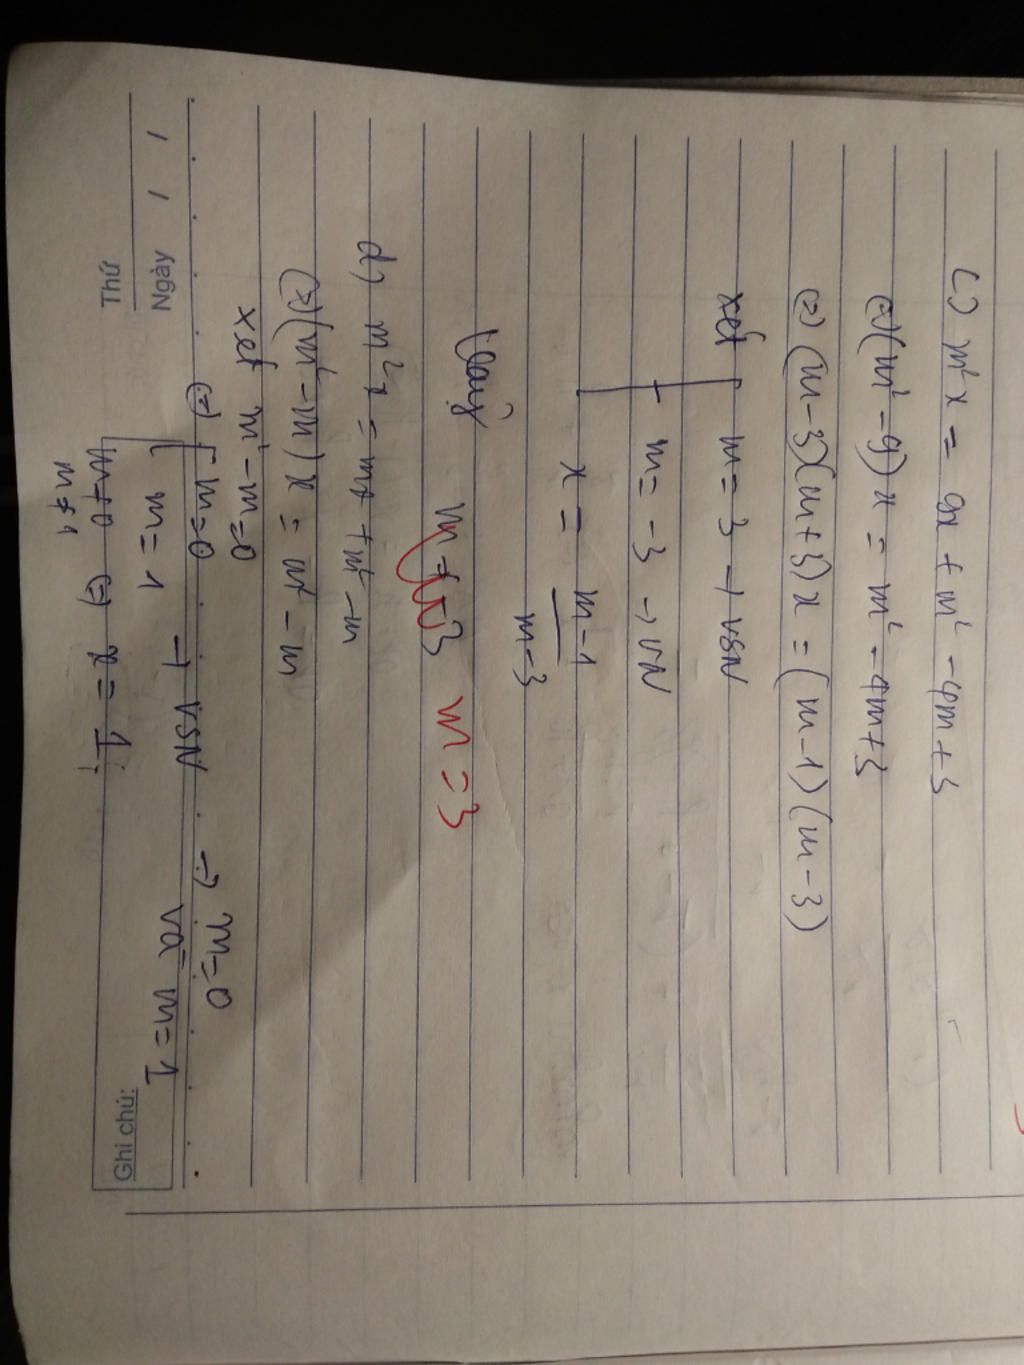 Thứ
Ngày / /
Ghi chú:
c) m²x = 9x + m² - 4m + 3
(=) (m² - 9) x = m² - 4m + 3
(=) (m - 3)(m + 3) x = (m - 1) (m - 3)
xét m = 3 → VSN
m = -3 → VN
x = m - 1
m - 3
m ≠ -3 m = 3
d) m²x = mx + m² - m
(=) (m² - m) x = m² - m
xét m² - m = 0
(=) m = 0 → m = 0
m = 1 → VSN và m = 1
m ≠ 0 (=) x = 1
m ≠ 1